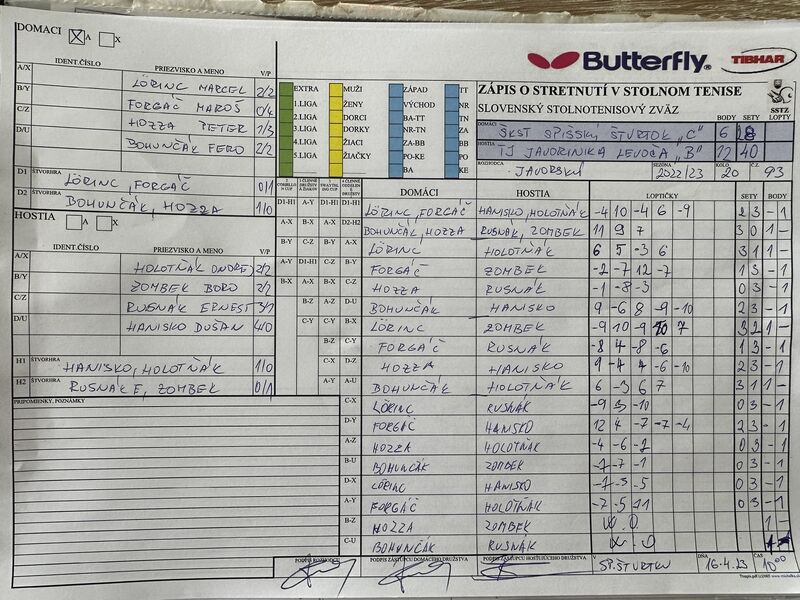 DOMACI A X
Butterfly TIBHAR
IDENT.ČÍSLO PRIEZVISKO A MENO V/P
A/X LÖRINC MARCEL 2/2
B/Y FORGÁČ MAROŠ 0/4
C/Z HOZZA PETER 1/3
D/U BOHUNČÁK FERO 2/2
D1 ŠTVORHRA LÖRINC, FORGÁČ 0/1
D2 BOHUNČÁK, HOZZA 1/0
HOSTIA A X
IDENT.ČÍSLO PRIEZVISKO A MENO V/P
A/X HOLOTŇÁK 2/2
B/Y ZOMBEK BORO 2/1
C/Z RUSNÁK ERNEST 3/1
D/U HANISKO DUŠAN 4/0
H1 ŠTVORHRA HANISKO, HOLOTŇÁK 1/0
H2 ŠTVORHRA RUSNÁK E, ZOMBEK 0/1
PRIPOMIENKY, POZNÁMKY
EXTRA MUŽI ZÁPAD TT
1.LIGA ŽENY VÝCHOD NR
2.LIGA DORCI BA-TT TN
3.LIGA DORKY NR-TN ZA
4.LIGA ŽIACI ZA-BB BB
5.LIGA ŽIAČKY PO-KE PO
BA KE
ZÁPIS O STRETNUTÍ V STOLNOM TENISE
SLOVENSKÝ STOLNOTENISOVÝ ZVÄZ
SSTZ
BODY SETY LOPTY
DOMÁCI ŠKST SPIŠSKÝ ŠTVRTOK „C“ 6
HOSTIA TJ JAVORINKA LEVOČA „B“ 12 40
ROZHODCA JAVORSKÝ SEZÓNA 2022/23 KOLO 20 Č.Z. 93
DOMÁCI HOSTIA LOPTIČKY SETY BODY
D1-H1 LÖRINC, FORGÁČ HANISKO, HOLOTŇÁK -4 10 -4 6 -9 2 3 - 1
D2-H2 BOHUNČÁK, HOZZA RUSNÁK, ZOMBEK 11 9 7 3 0 1 -
A-X LÖRINC HOLOTŇÁK 6 5 -3 6 3 1 1 -
B-Y FORGÁČ ZOMBEK -2 -7 12 -7 1 3 - 1
C-Z HOZZA RUSNÁK -1 -8 -3 0 3 - 1
D-U BOHUNČÁK HANISKO 9 -6 8 -9 -10 2 3 - 1
B-X LÖRINC ZOMBEK -9 10 -9 10 7 3 2 1 -
C-Y FORGÁČ RUSNÁK -8 4 -8 -6 1 3 - 1
D-Z HOZZA HANISKO 9 -4 4 -6 -10 2 3 - 1
A-U BOHUNČÁK HOLOTŇÁK 6 -3 6 7 3 1 1 -
C-X LÖRINC RUSNÁK -9 -10 0 3 - 1
D-Y FORGÁČ HANISKO 12 4 -7 -7 -4 2 3 - 1
A-Z HOZZA HOLOTŇÁK -4 -6 -2 0 3 - 1
B-U BOHUNČÁK ZOMBEK -7 -7 -1 0 3 - 1
D-X LÖRINC HANISKO -7 -3 -5 0 3 - 1
A-Y FORGÁČ HOLOTŇÁK -7 -5 -11 0 3 - 1
B-Z HOZZA ZOMBEK 1 -
C-U BOHUNČÁK RUSNÁK
PODPIS ROZHODCU PODPIS ZÁSTUPCU DOMÁCEHO DRUŽSTVA PODPIS ZÁSTUPCU HOSŤUJÚCEHO DRUŽSTVA V SP. ŠTVRTKU DŇA 16.4.23 ČAS 10:00